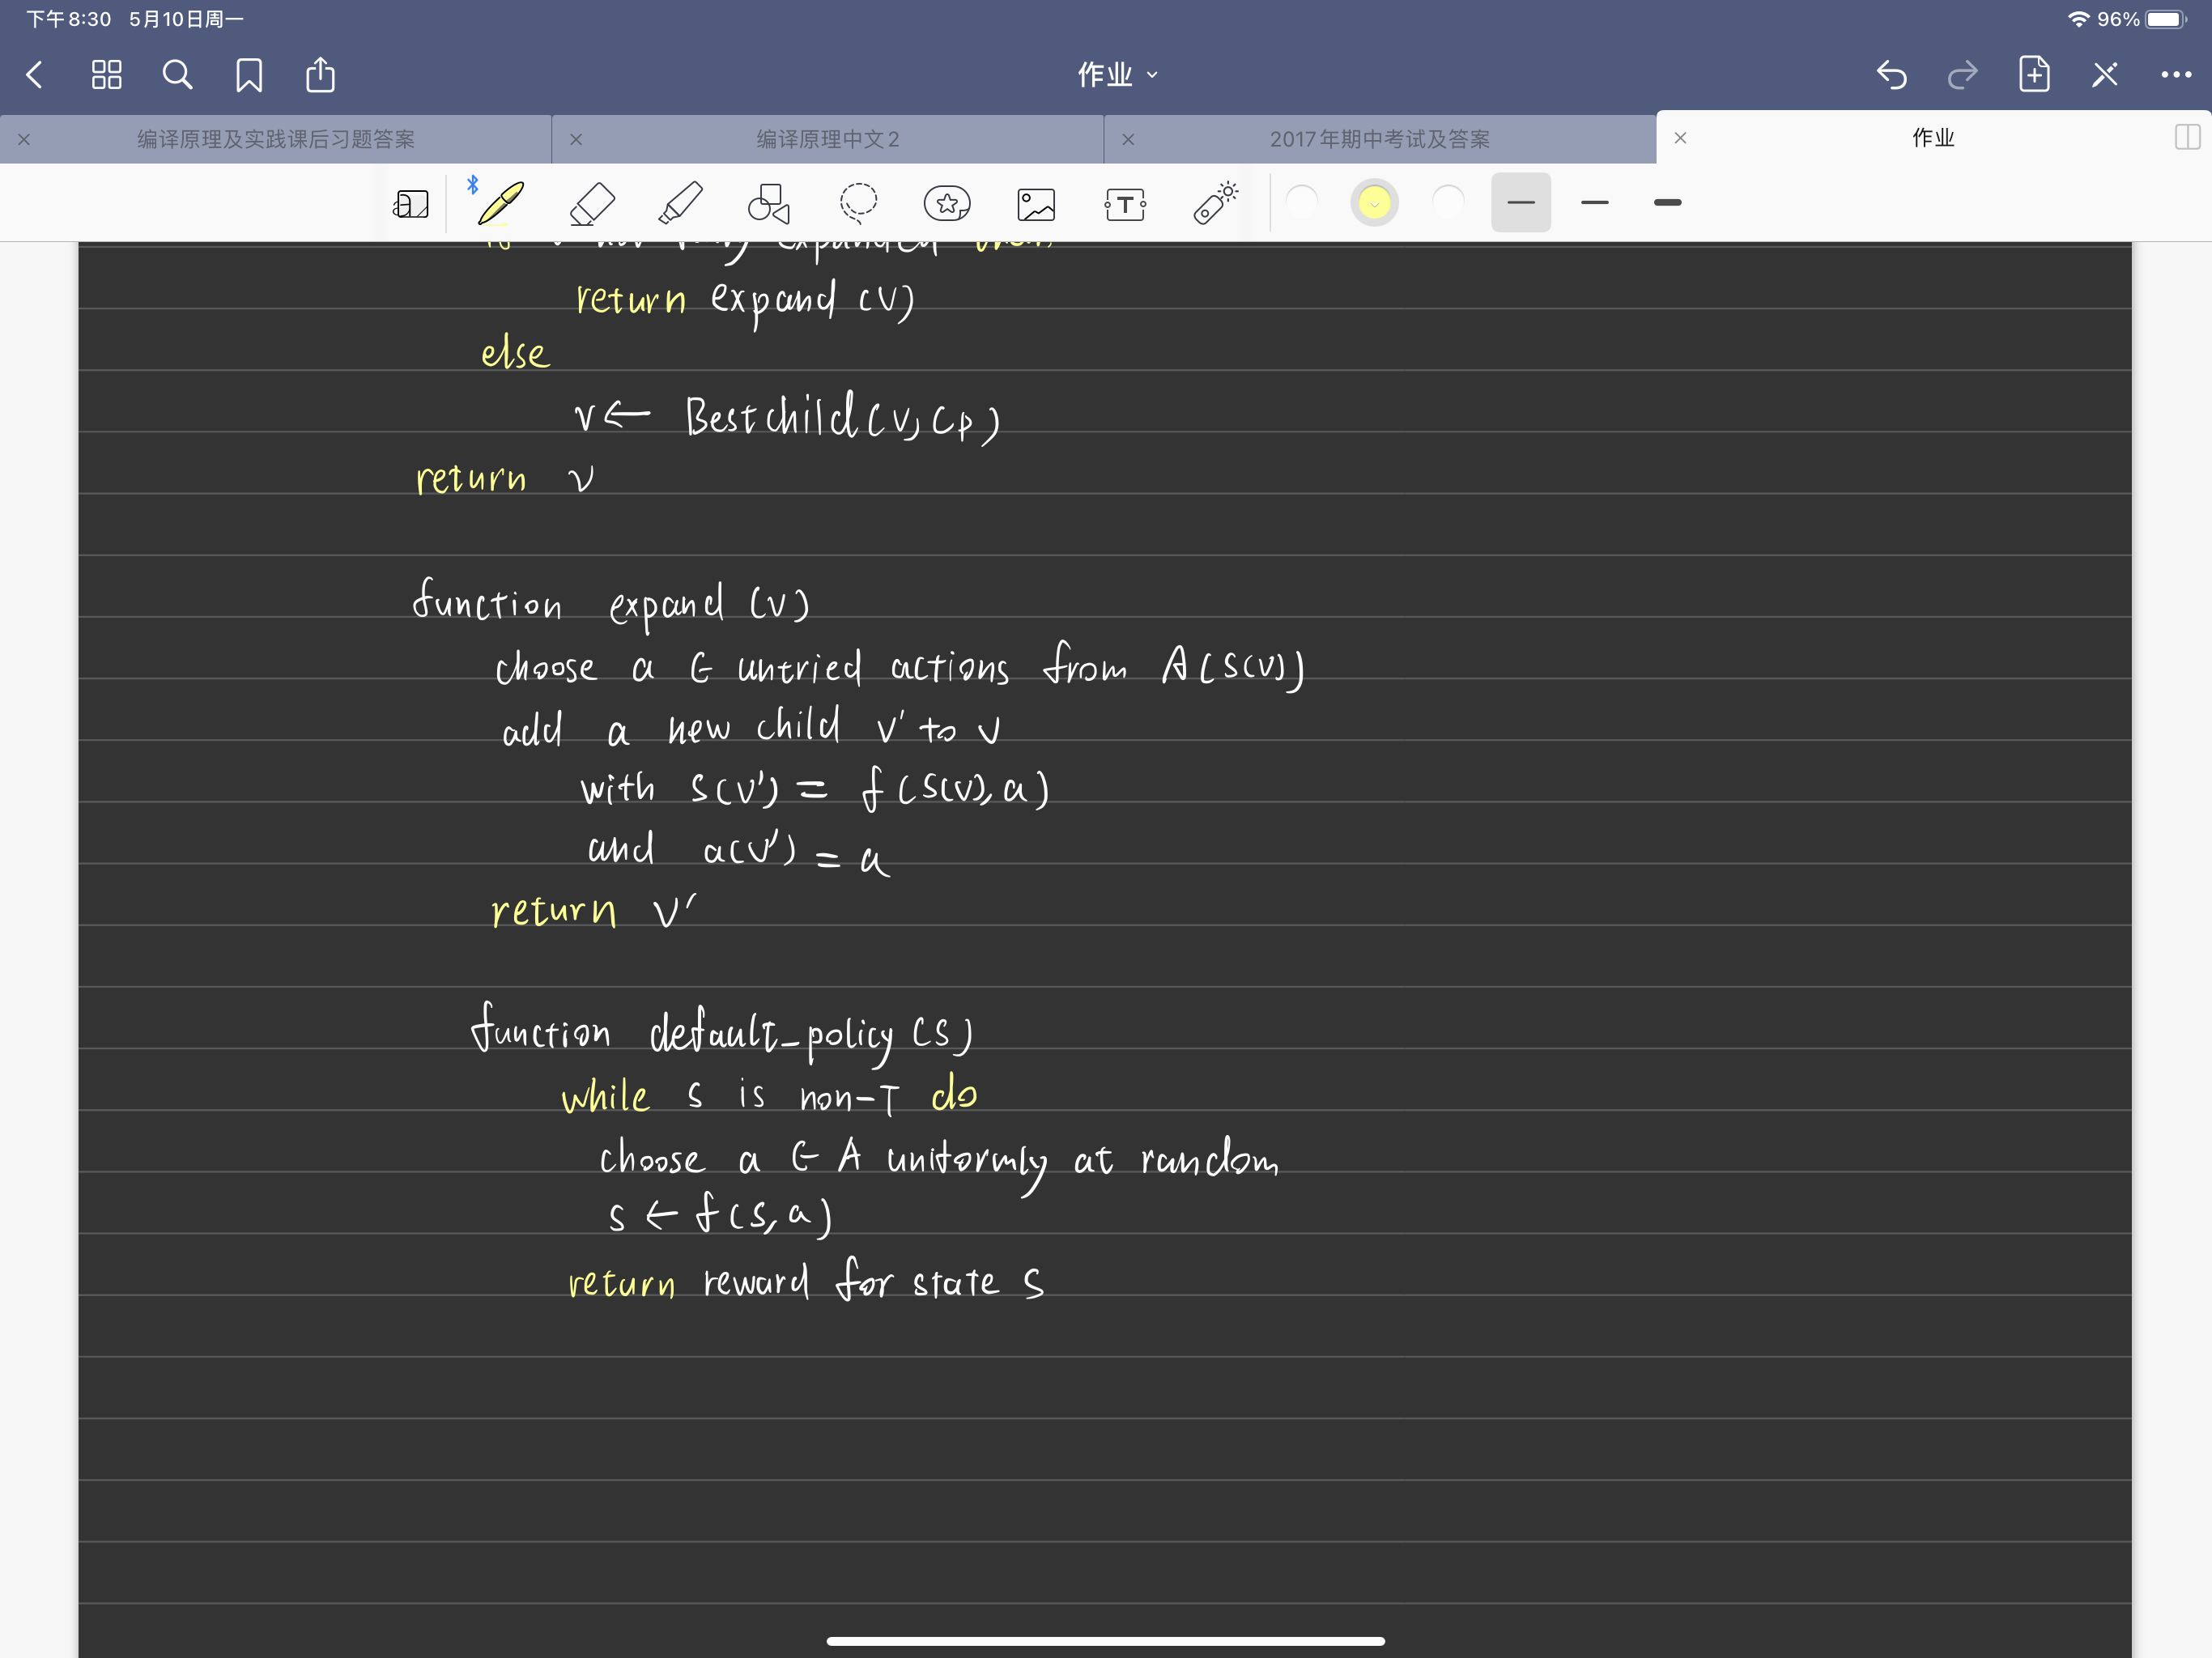 下午8:30 5月10日周一
96%
作业
编译原理及实践课后习题答案
编译原理中文2
2017年期中考试及答案
作业
expanded then
return expand (v)
else
v← Bestchild(v, Cp)
return v
function expand (v)
choose a ∈ untried actions from A(s(v))
add a new child v' to v
with s(v') = f(s(v), a)
and a(v') = a
return v'
function default_policy (s)
while s is non-T do
choose a ∈ A uniformly at random
s ← f(s, a)
return reward for state s